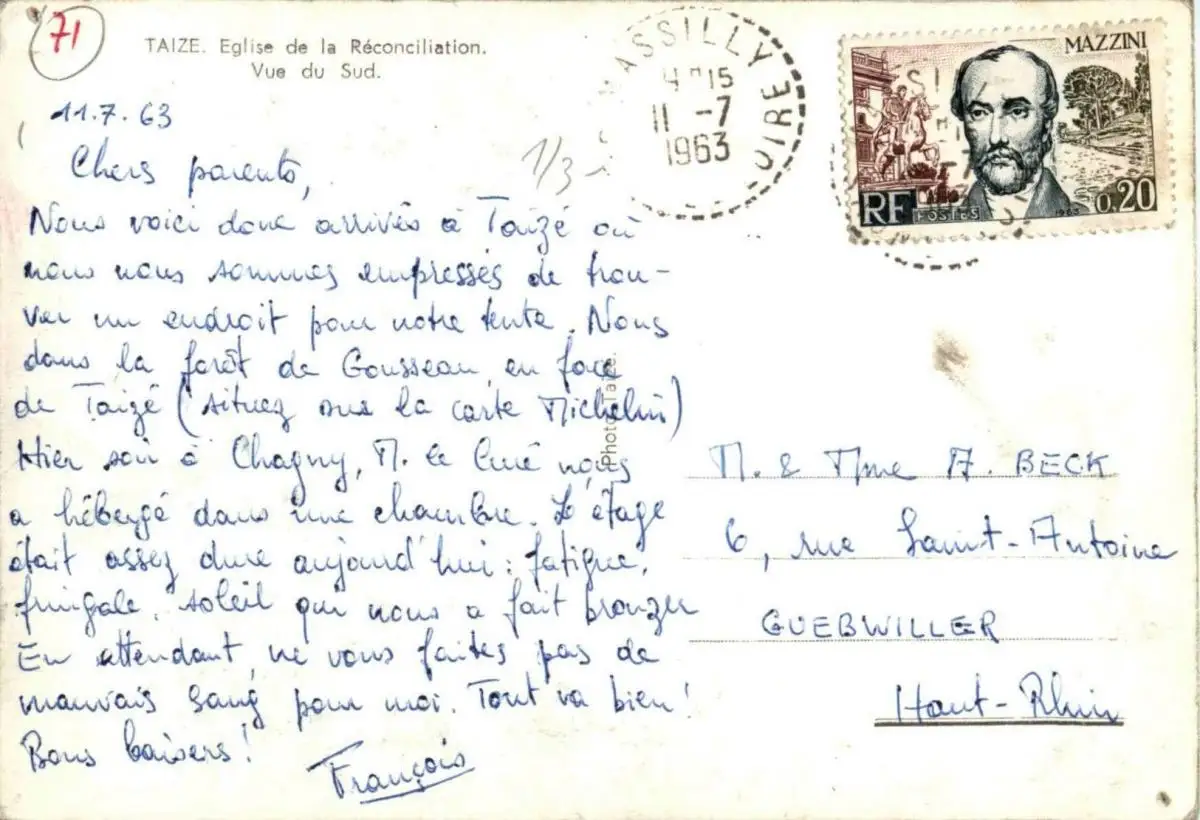 71
TAIZE. Eglise de la Réconciliation.
Vue du Sud.
11.7.63
1/3
Chers parents,
Nous voici donc arrivés à Taizé où
nous nous sommes empressés de trou-
ver un endroit pour notre tente. Nous
dans la forêt de Gousseau, en face
de Taizé (situez sur la carte Michelin)
Hier soir à Chagny, M. le Curé nous
a hébergé dans une chambre. L'étage
était assez dure aujourd'hui : fatigue,
fringale, soleil qui nous a fait bronzer
En attendant, ne vous faites pas de
mauvais sang pour moi. Tout va bien!
Bons baisers!
François
Photo Tai
MASSILLY
15
11 -7
1963
OIRE
MAZZINI
RF
POSTES
1963
0,20
M. & Mme A. BECK
6, rue Saint-Antoine
GUEBWILLER
Haut-Rhin